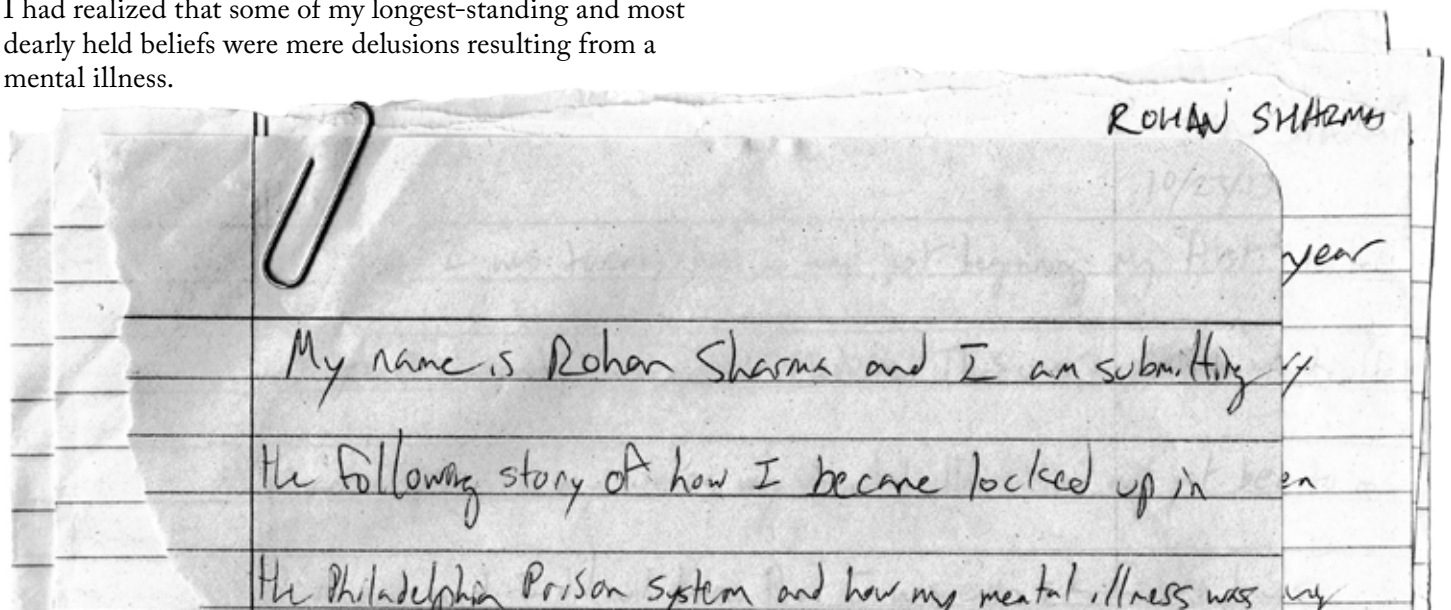 I had realized that some of my longest-standing and most
dearly held beliefs were mere delusions resulting from a
mental illness.
ROHAN SHARMA
year
My name is Rohan Sharma and I am submitting
the following story of how I became locked up in
the Philadelphia Prison system and how my mental illness was